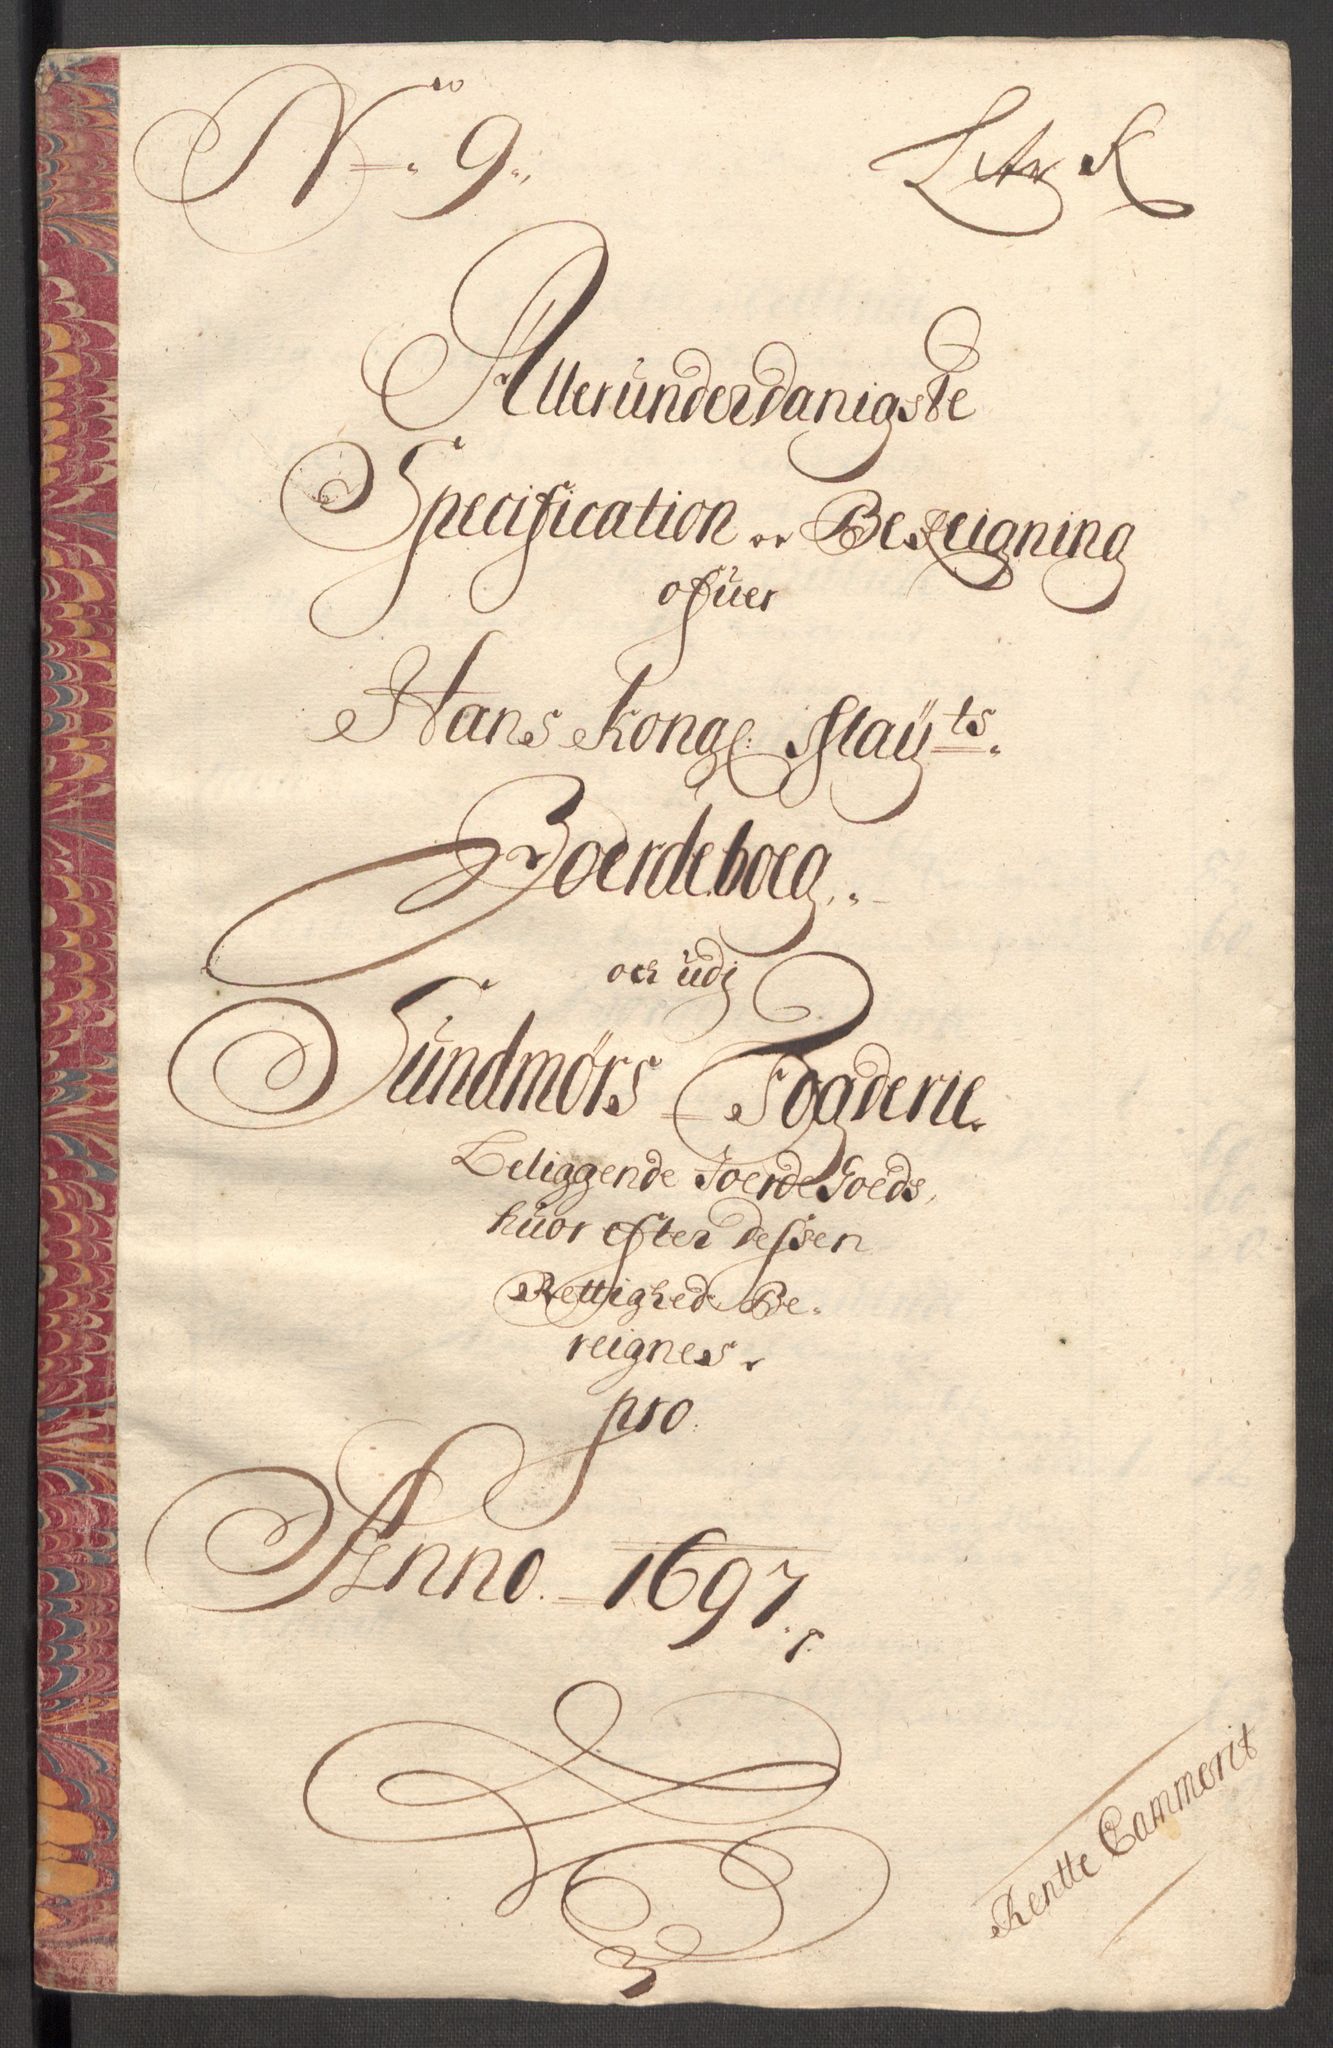 No 9.
Litr K
Allerunderdanigste
Specification .. Bereigning
ofuer
Hans Kongl: Maÿts.
Joerdeboeg
och udj
Sundmørs Fogderie
Beliggende Joerde Goeds,
huor efter dessen
Rettighed Be-
reignes.
pro
Anno 1697.
Rentte Cammerit